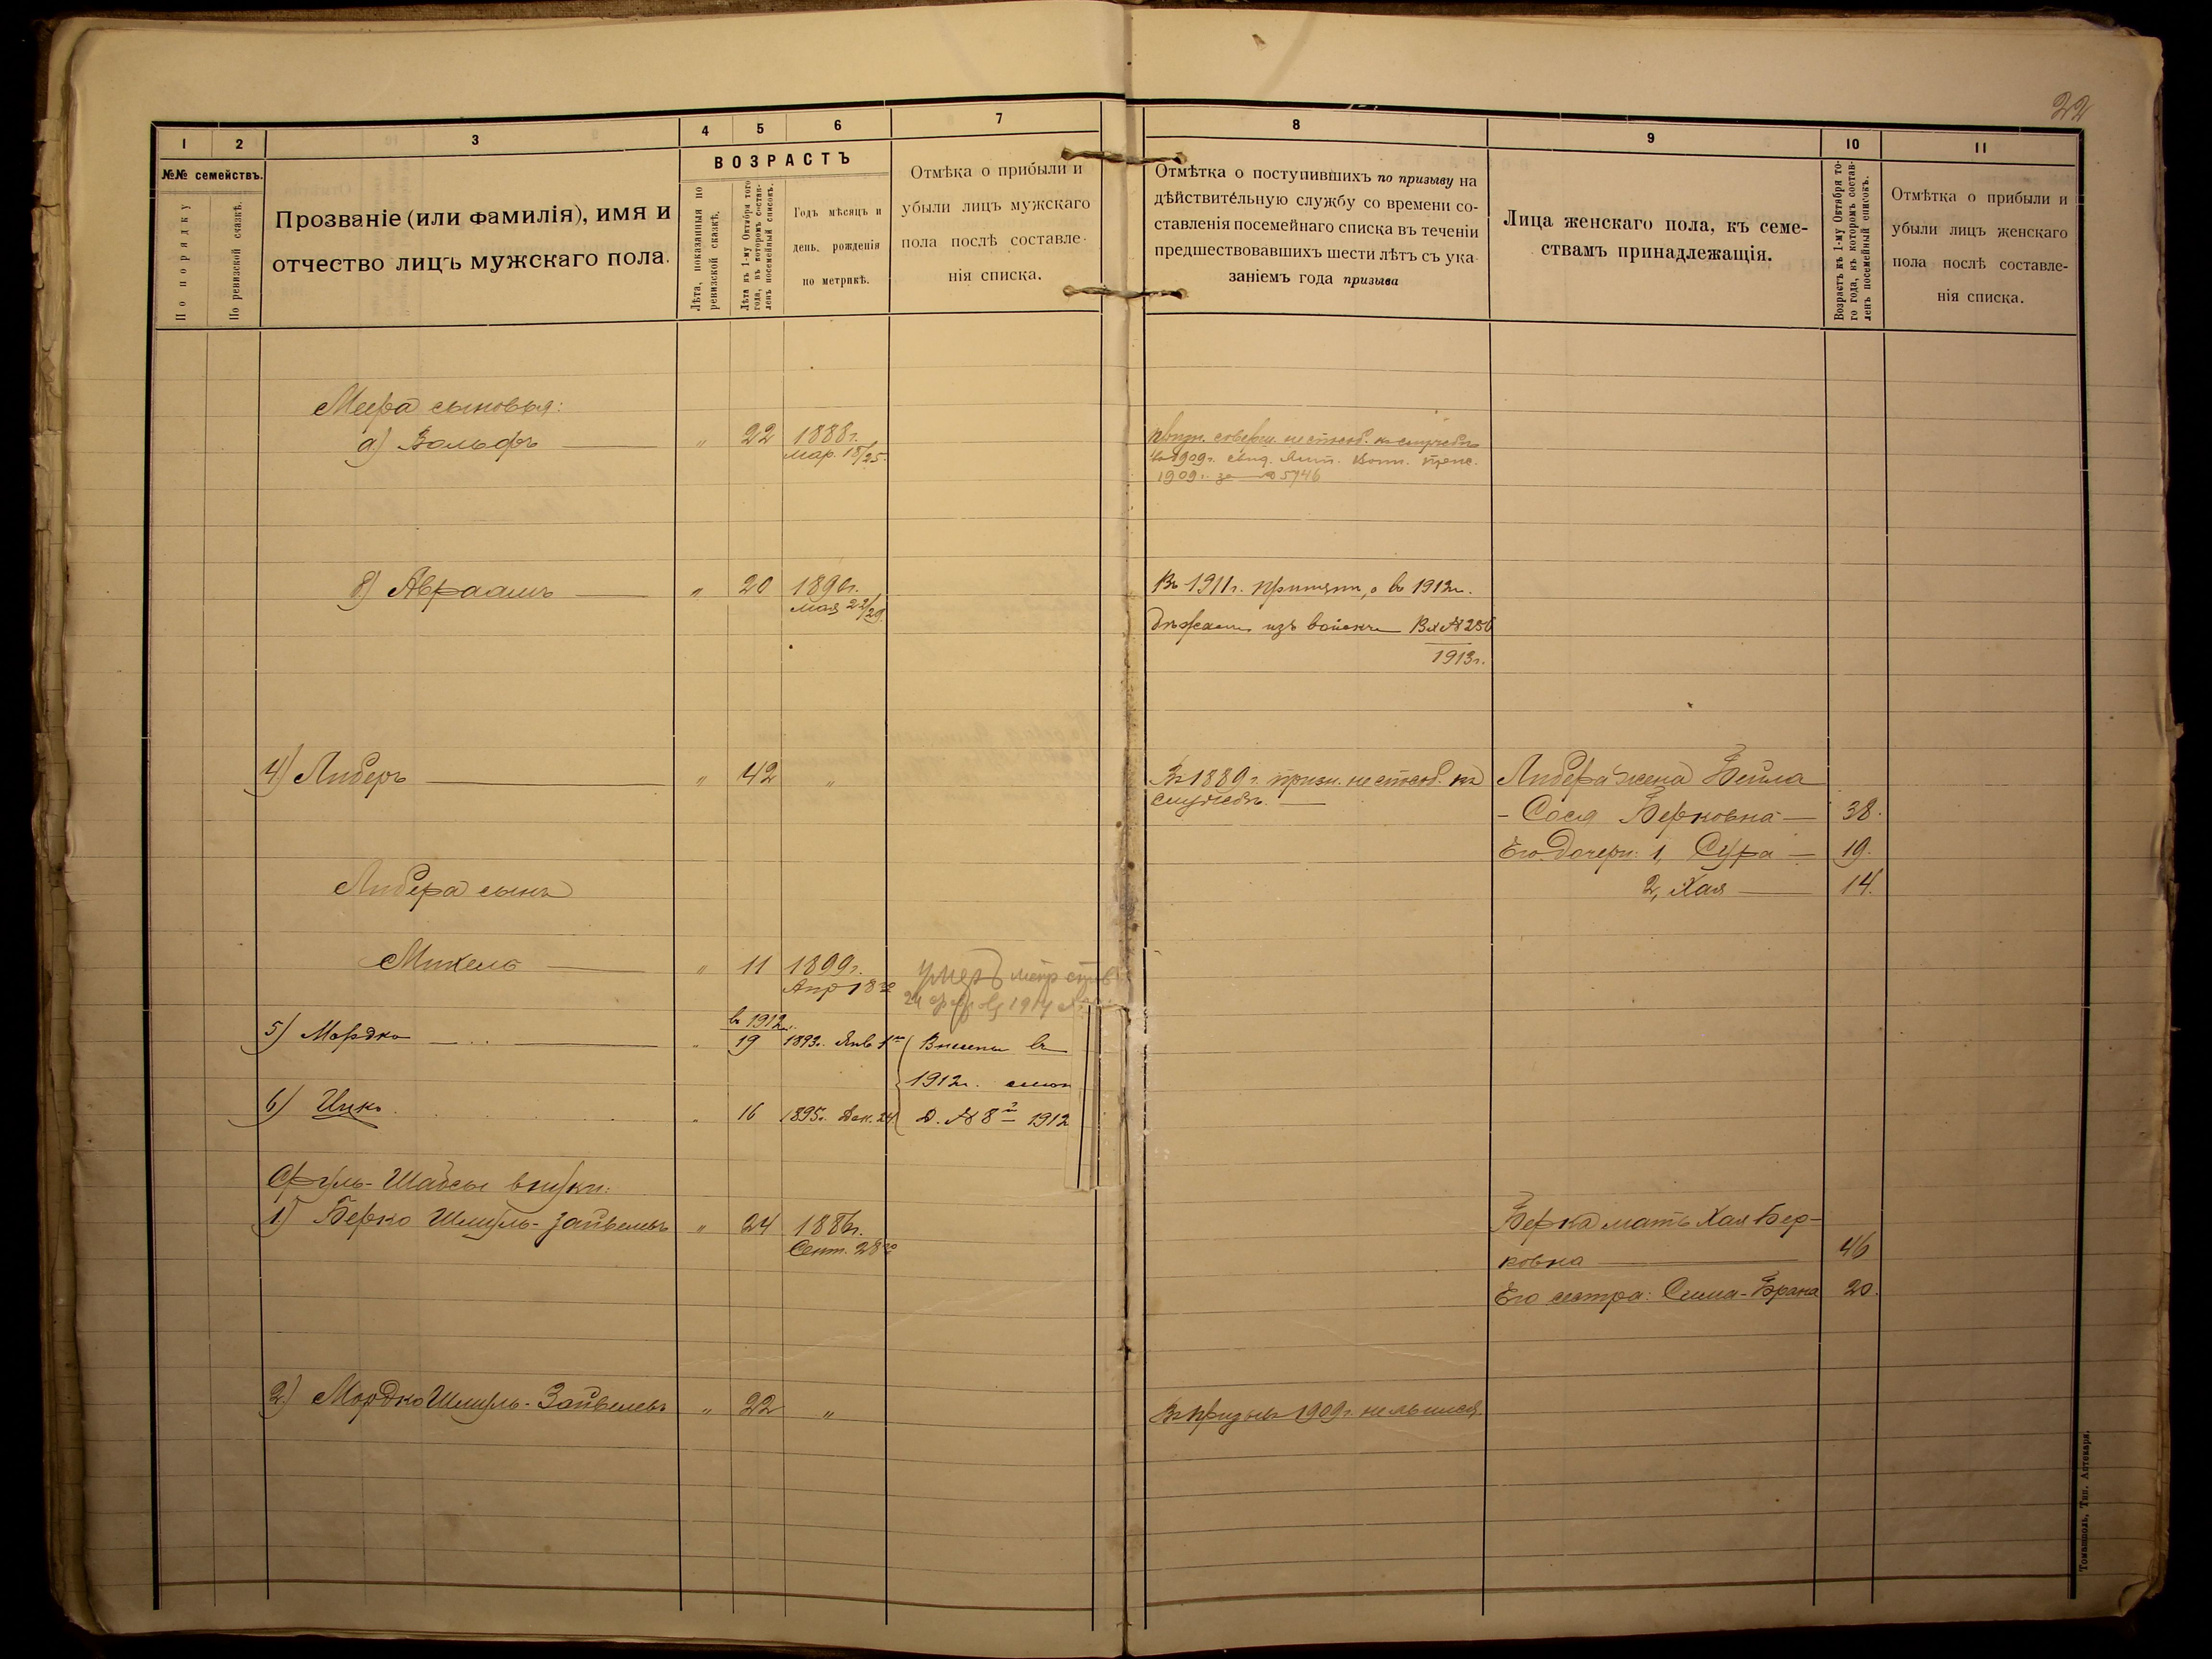 22
1
2
3
4
5
6
7
8
9
10
11
№№ семействъ.
По порядку
По ревизской сказкѣ.
Прозваніе (или фамилія), имя и
отчество лицъ мужскаго пола.
ВОЗРАСТЪ
Лѣта, показанныя по
ревизской сказкѣ.
Лѣта къ 1-му Октября того
года, въ которомъ состав-
ленъ посемейный списокъ.
Годъ мѣсяцъ и
день, рожденія
по метрикѣ.
Отмѣка о прибыли и
убыли лицъ мужскаго
пола послѣ составле-
нія списка.
Отмѣтка о поступившихъ по призыву на
дѣйствительную службу со времени со-
ставленія посемейнаго списка въ теченіи
предшествовавшихъ шести лѣтъ съ ука-
заніемъ года призыва
Лица женскаго пола, къ семе-
ствамъ принадлежащія.
Возрастъ къ 1-му Октября то-
го года, въ которомъ состав-
ленъ посемейный списокъ.
Отмѣтка о прибыли и
убыли лицъ женскаго
пола послѣ составле-
нія списка.
Меера сыновья:
а) Вольфъ — „ 22 1888г.
Мар. 18/25.
призн. соверш. неспособ. къ службѣ
въ 1909г. свид.
1909г. за № 5746
б) Авраамъ — „ 20 1890г.
Мая 22/29.
Въ 1911г. принятъ, а въ 1912г.
бѣжалъ изъ войскъ Вх № 256
1913г.
4) Либеръ — „ 42 „
Въ 1889г. призн. неспособ. къ
службѣ. —
Либера жена Бейла
- Сося Берковна — 38.
Его дочери: 1, Сура — 19.
2, Хая — 14.
Либера сынъ
Михель — „ 11 1899г.
Апр 18
умеръ
1917
въ 1912г.
5) Мордко — „ 19 1893г. Янв 1го
Внесены въ
1912г.
Д. № 8 1912
6) Ицко „ 16 1895г. Дек. 24
Сруль-Шабсы внуки:
1) Берко Шмуль-Зайвелевъ „ 24 1886г.
Сент. 28го
Берка мать Хая Бер-
ковна — 46
Его сестра: Сима-Брана 20.
2) Мордко Шмуль-Зайвелевъ „ 22 „
Въ призывъ 1909г. не явился.
Томашполь, Тип. Аптекаря.